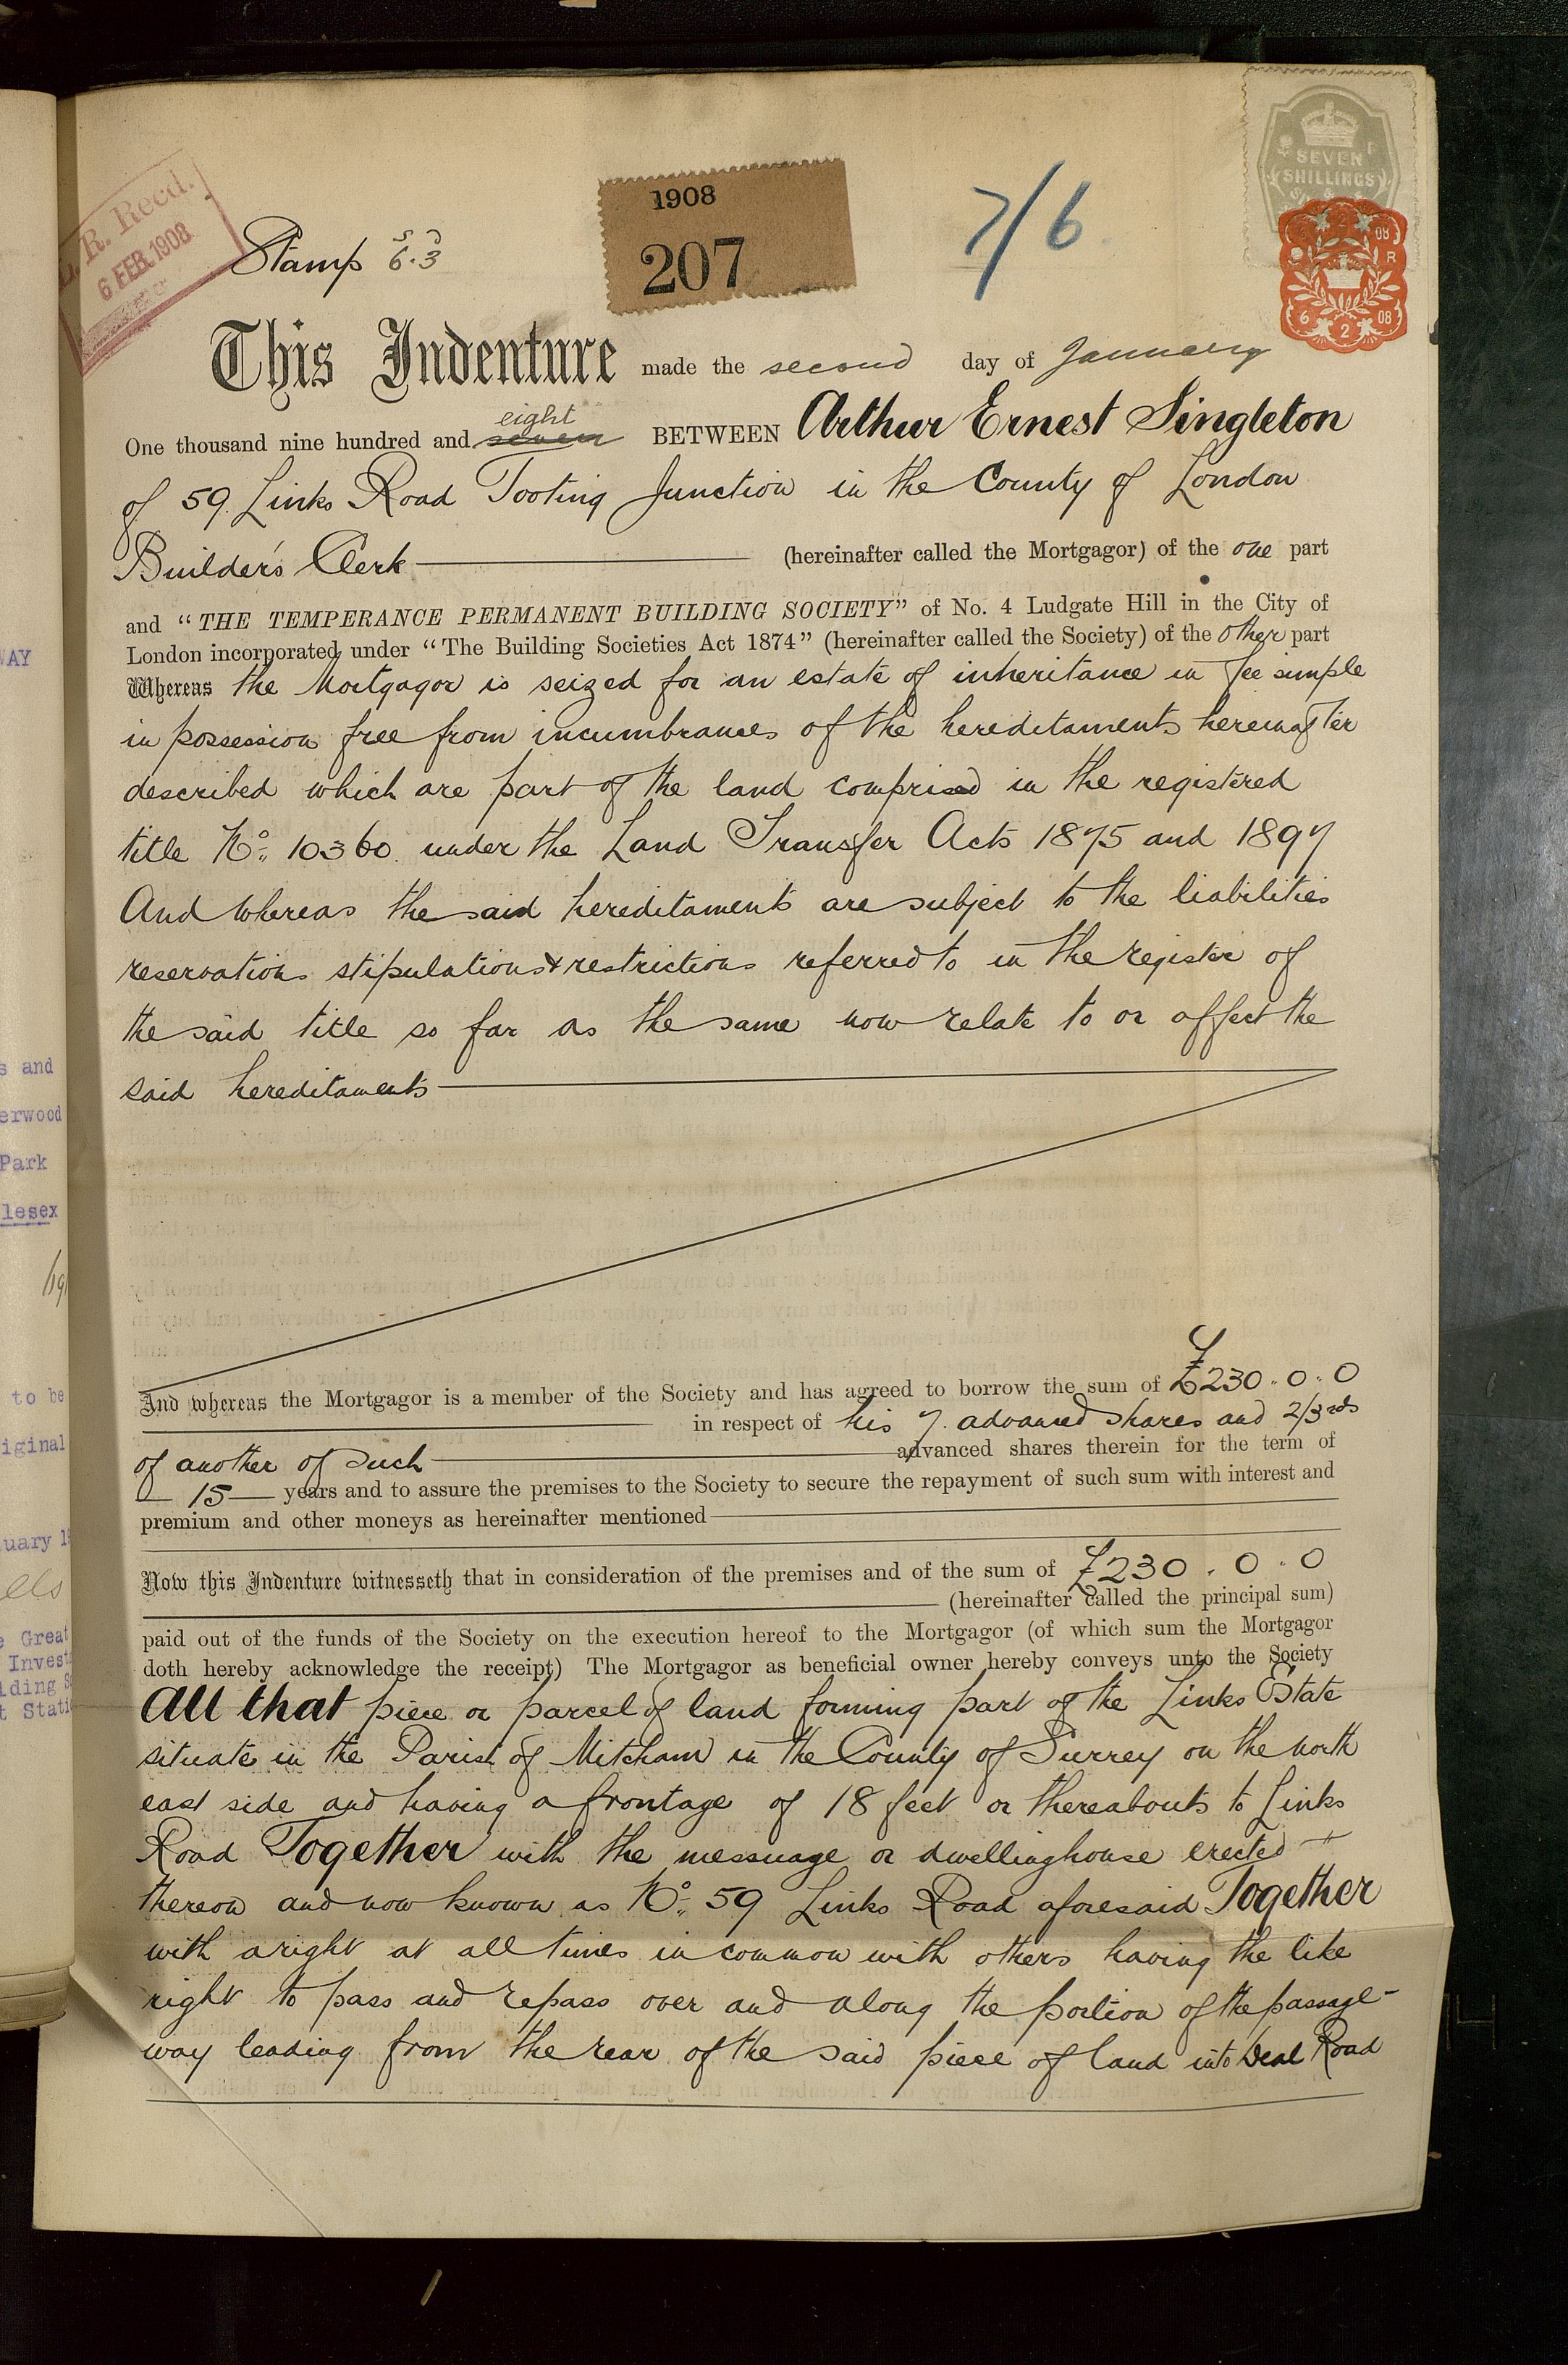 L. R. Recd.
6 FEB. 1908
Stamp 6.3
s d
1908
207
7/6
SEVEN
SHILLINGS
08
R
6
2
08
This Indenture made the second day of January
eight
One thousand nine hundred and seven BETWEEN Arthur Ernest Singleton
of 59 Links Road Tooting Junction in the County of London
Builder's Clerk (hereinafter called the Mortgagor) of the one part
and "THE TEMPERANCE PERMANENT BUILDING SOCIETY" of No. 4 Ludgate Hill in the City of
London incorporated under "The Building Societies Act 1874" (hereinafter called the Society) of the other part
Whereas the Mortgagor is seized for an estate of inheritance in fee simple
in possession free from incumbrances of the hereditaments hereinafter
described which are part of the land comprised in the registered
title No. 10360 under the Land Transfer Acts 1875 and 1897
And whereas the said hereditaments are subject to the liabilities
reservations stipulations & restrictions referred to in the register of
the said title so far as the same now relate to or affect the
said hereditaments
And whereas the Mortgagor is a member of the Society and has agreed to borrow the sum of £230.0.0
in respect of his 7 advanced shares and 2/3rds
of another of such advanced shares therein for the term of
15 years and to assure the premises to the Society to secure the repayment of such sum with interest and
premium and other moneys as hereinafter mentioned
Now this Indenture witnesseth that in consideration of the premises and of the sum of £230.0.0
(hereinafter called the principal sum)
paid out of the funds of the Society on the execution hereof to the Mortgagor (of which sum the Mortgagor
doth hereby acknowledge the receipt) The Mortgagor as beneficial owner hereby conveys unto the Society
All that piece or parcel of land forming part of the Links Estate
situate in the Parish of Mitcham in the County of Surrey on the north
east side and having a frontage of 18 feet or thereabouts to Links
Road Together with the messuage or dwellinghouse erected
thereon and now known as No. 59 Links Road aforesaid Together
with a right at all times in common with others having the like
right to pass and repass over and along the portion of the passage-
way leading from the rear of the said piece of land into Deal Road
WAY
s and
erwood
Park
lesex
to be
iginal
uary 1
ells
e Great
Invest
lding S
t Stati